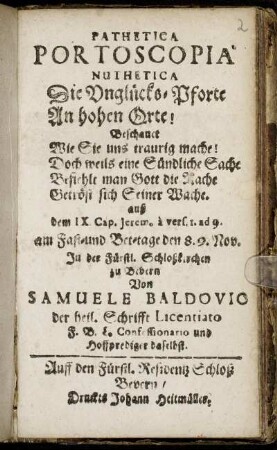 2
PATHETICA
PORTOSCOPIA
NUTHETICA
Die Vnglücks-Pforte
An hohen Orte!
Beschauet
Wie Sie uns traurig mache!
Doch weils eine Sündliche Sache
Befiehle man Gott die Rache
Getröst sich Seiner Wache.
auß
dem IX. Cap. Jerem. à vers. 1. ad 9.
am Fast-und Bet-tage den 8. 9. Nov.
In der Fürstl. Schloßkirchen
zu Bevern
Von
SAMUELE BALDOVIO
der heil. Schrifft Licentiato
F. B. L. Confessionario und
Hoffprediger daselbst.
Auff den Fürstl. Residentz Schloß
Bevern/
Druckts Johann Heitmüller.